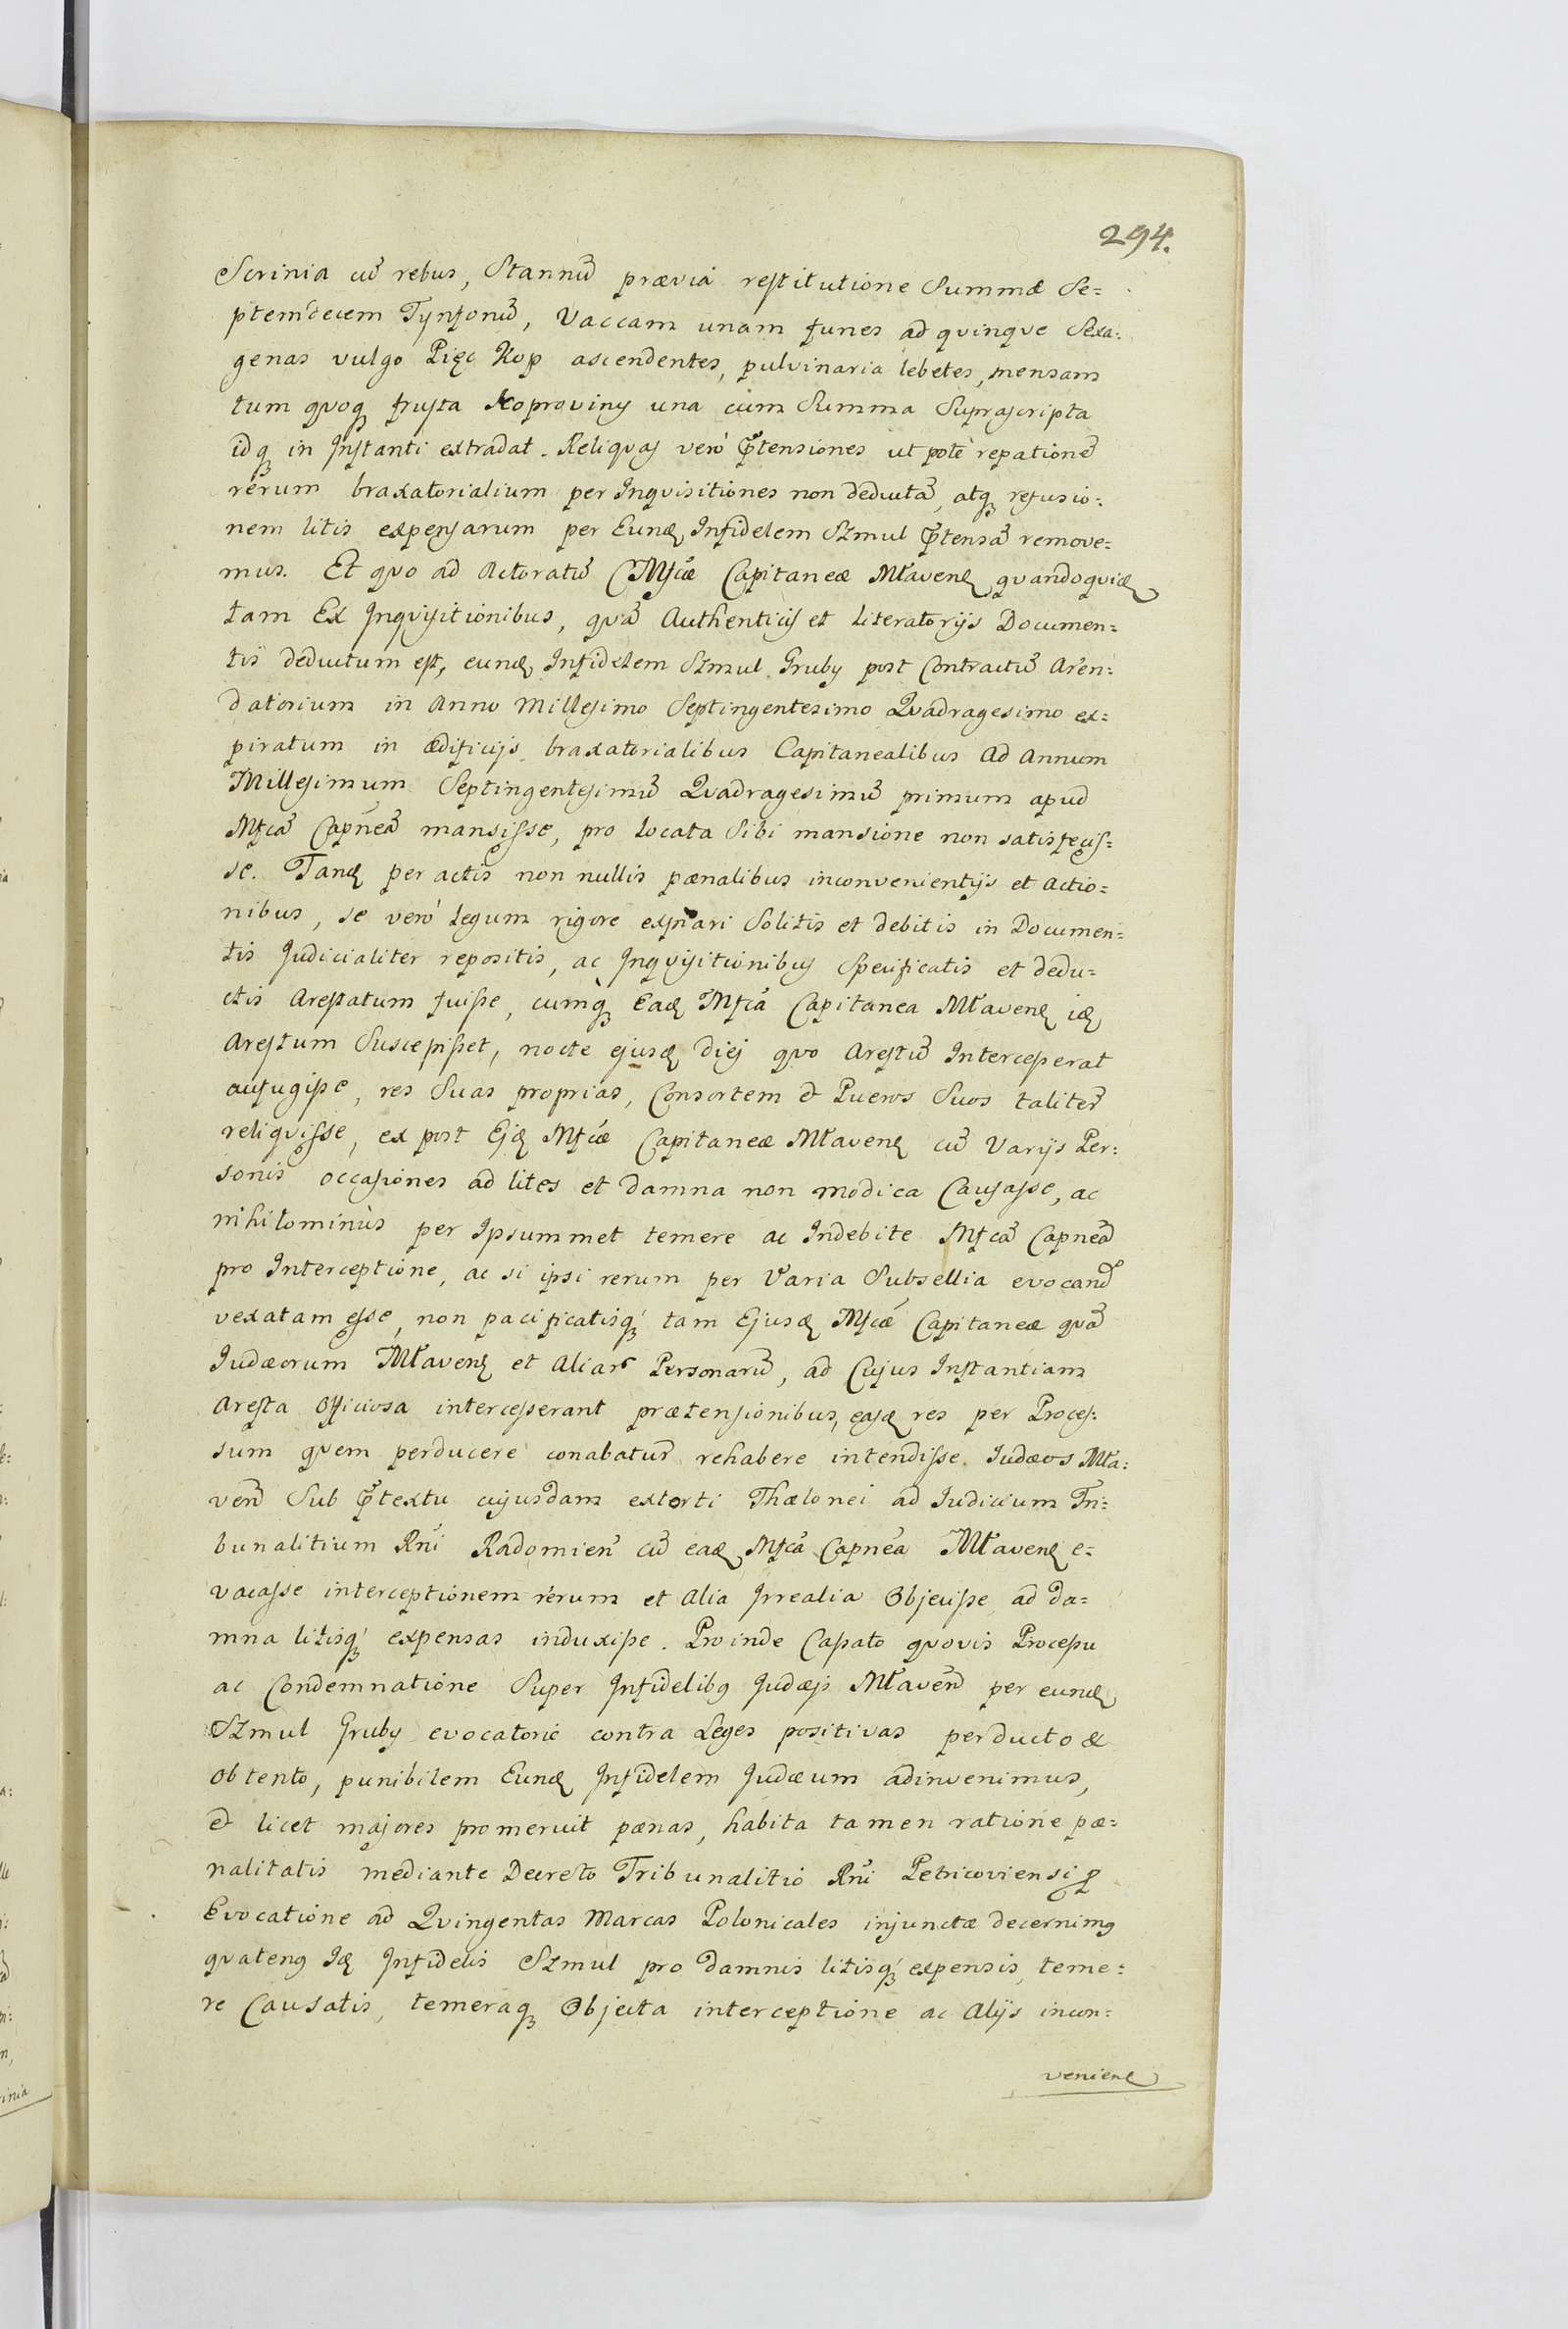 294.
Scrinia cū rebus, Stannū prævia restitutione Summæ Se=
ptemdecem Tynfonū, Vaccam unam funes ad quinque Sexa:
genas vulgo Pięc Kop ascendentes, pulvinaria lebetes, mensam
tum quoq frusta Koproviny una cum Summa Suprascripta
idq in Instanti extradat. Reliquas verò Ptensiones ut potè repationē
rerum braxatorialium per Inquisitiones non deductā, atq refusio:
nem litis expensarum per Eund Infidelem Szmul Ptensā remove=
mus. Et quo ad Actoratū Mfcæ Capitaneæ Mławen quandoquid
tam Ex Inquisitionibus, quā Authenticis et Literatorijs Documen=
tis deductum est, eund Infidelem Szmul Gruby post Contractū Aren:
datorium in Anno Millesimo Septingentesimo Quadragesimo ex=
piratum in ædificijs braxatorialibus Capitanealibus Ad Annum
Millesimum Septingentesimū Quadragesimū primum apud
Mfcā Capneā mansisse, pro Locata Sibi mansione non satisfecis=
se. Tand per actis non nullis pænalibus inconvenientijs et Actio=
nibus, se verò Legum rigore expiari Solitis et debitis in Documen=
tis Judicialiter repositis, ac Inquisitionibus Specificatis et dedu=
ctis Arestatum fuisse, cumq Ead Mfcā Capitanea Mławen id
Arestum Suscepisset, nocte ejusd diej quo Arestū Intercesserat
aufugisse, res Suas proprias, Consortem et Pueros Suos taliter
reliquisse, ex post Ejd Mfcæ Capitaneæ Mławen cū Varijs Per:
sonis occasiones ad lites et damna non modica Causasse, ac
nihilominùs per Ipsummet temere ac Indebite Mfcā Capneā
pro Interceptione, ac si ipsi rerum per Varia Subsellia evocand
vexatam esse, non pacificatisq tam Ejusd Mfcæ Capitaneæ quā
Judæorum Mławen et Aliar Personarū, ad Cujus Instantiam
Aresta Officiosa intercesserant prætensionibus, easd res per Proces:
sum quem perducere conabatur rehabere intendisse. Judæos Mła:
ven Sub Ptextu cujusdam extorti Thælonei ad Judicium Tri=
bunalitium Rni Radomien cū ead Mfcā Capnea Mławen e=
vocasse interceptionem rerum et Alia Irrealia Objecisse ad da=
mna litisq expensas induxisse. Proinde Cassato quovis Processu
ac Condemnatione Super Infidelibq Judæis Mławen per eund
Szmul Gruby evocatorie contra Leges positivas perducto &
obtento, punibilem Eund Infidelem Judæum adinvenimus,
et licet majores promeruit pænas, habita tamen ratione pæ=
nalitatis mediante Decreto Tribunalitio Rni Petricoviensi P
Evocatione ad Quingentas Marcas Polonicales injunctæ decernimq
quatenq Id Infidelis Szmul pro damnis litisq expensis, teme=
re Causatis, temeraq Objecta interceptione ac Alijs incon=
venien